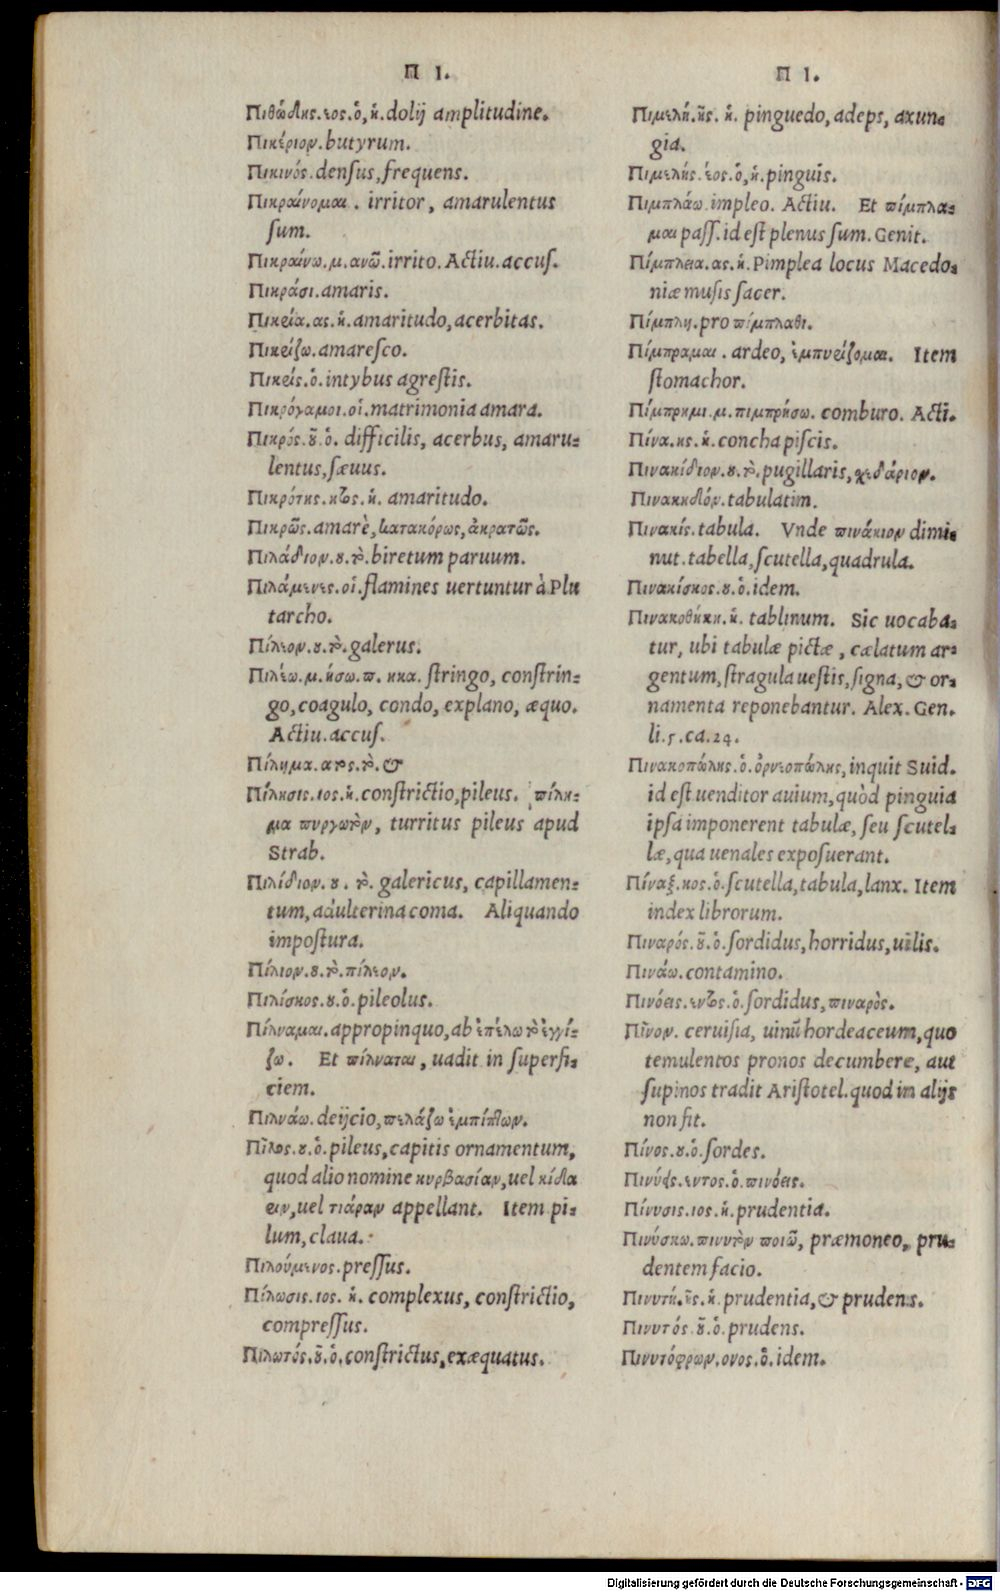 Π Ι.
Πιθώδης.εος.ὁ,ἡ.dolij amplitudine.
Πικέριον.butyrum.
Πικινός.densus,frequens.
Πικραίνομαι. irritor, amarulentus
sum.
Πικραίνω.μ.ανῶ.irrito.Actiu.accus.
Πικράσι.amaris.
Πικρία.ας.ἡ.amaritudo,acerbitas.
Πικρίζω.amaresco.
Πικρίς.ὁ.intybus agrestis.
Πικρόγαμοι.οἱ.matrimonia amara.
Πικρός.οῦ.ὁ. difficilis, acerbus, amaru-
lentus,sæuus.
Πικρότης.ητος.ἡ. amaritudo.
Πικρῶς.amarè,κατακόρως,ἀκρατῶς.
Πιλάδιον.ου.τὸ.biretum paruum.
Πιλάμενες.οἱ.flamines uertuntur à Plu
tarcho.
Πίλεον.ου.τὸ.galerus.
Πιλέω.μ.ήσω.π. ηκα. stringo, constrin-
go,coagulo, condo, explano, æquo.
Actiu.accus.
Πίλημα.ατος.τὸ.&
Πίλησις.ιος.ἡ.constrictio,pileus. πίλη-
μα πυργωτὸν, turritus pileus apud
Strab.
Πιλίδιον.ου. τὸ. galericus, capillamen-
tum,adulterina coma. Aliquando
impostura.
Πίλιον.ου.τὸ.πίλεον.
Πιλίσκος.ου.ὁ.pileolus.
Πίλναμαι.appropinquo,ab ἐπέλω τὸ ἐγγί-
ζω. Et πίλναται, uadit in superfi-
ciem.
Πιλνάω.deijcio,πελάζω ἐμπίπτων.
Πῖλος.ου.ὁ.pileus,capitis ornamentum,
quod alio nomine κυρβασίαν,uel κίδα
ειν,uel τιάραν appellant. Item pi-
lum,claua.
Πιλούμενος.pressus.
Πίλωσις.ιος. ἡ. complexus, constrictio,
compressus.
Πιλωτός.οῦ.ὁ.constrictus,exæquatus.
Π Ι.
Πιμελή.ῆς. ἡ. pinguedo, adeps, axun-
gia.
Πιμελής.έος.ὁ,ἡ.pinguis.
Πιμπλάω.impleo. Actiu. Et πίμπλα-
μαι pass.id est plenus sum.Genit.
Πίμπλεια.ας.ἡ.Pimplea locus Macedo-
niæ musis sacer.
Πίμπλη.pro πίμπλαθι.
Πίμπραμαι. ardeo, ἐμπυρίζομαι. Item
stomachor.
Πίμπρημι.μ.πιμπρήσω. comburo. Acti.
Πίνα.ης.ἡ.concha piscis.
Πινακίδιον.ου.τὸ.pugillaris,χιδάριον.
Πινακηδόν.tabulatim.
Πινακίς.tabula. Vnde πινάκιον dimi-
nut.tabella,scutella,quadrula.
Πινακίσκος.ου.ὁ.idem.
Πινακοθήκη.ἡ. tablinum. Sic uocaba-
tur, ubi tabulæ pictæ, cælatum ar-
gentum,stragula uestis,signa,& or-
namenta reponebantur. Alex. Gen.
li.5.ca.24.
Πινακοπώλης.ὁ.ὀρνεοπώλης,inquit Suid.
id est uenditor auium,quòd pinguia
ipsa imponerent tabulæ, seu scutel-
læ,qua uenales exposuerant.
Πίναξ.κος.ὁ.scutella,tabula,lanx. Item
index librorum.
Πιναρός.οῦ.ὁ.sordidus,horridus,uilis.
Πινάω.contamino.
Πινόεις.εντος.ὁ.sordidus,πιναρὸς.
Πῖνον. ceruisia, uinũ hordeaceum,quo
temulentos pronos decumbere, aut
supinos tradit Aristotel.quod in alijs
non fit.
Πίνος.ου.ὁ.sordes.
Πινῦς.εντος.ὁ.πινόεις.
Πίνυσις.ιος.ἡ.prudentia.
Πινύσκω.πινυτὸν ποιῶ, præmoneo, pru-
dentem facio.
Πινυτή.ῆς.ἡ.prudentia,& prudens.
Πινυτός.οῦ.ὁ.prudens.
Πινυτόφρων.ονος.ὁ.idem.
Digitalisierung gefördert durch die Deutsche Forschungsgemeinschaft - DFG